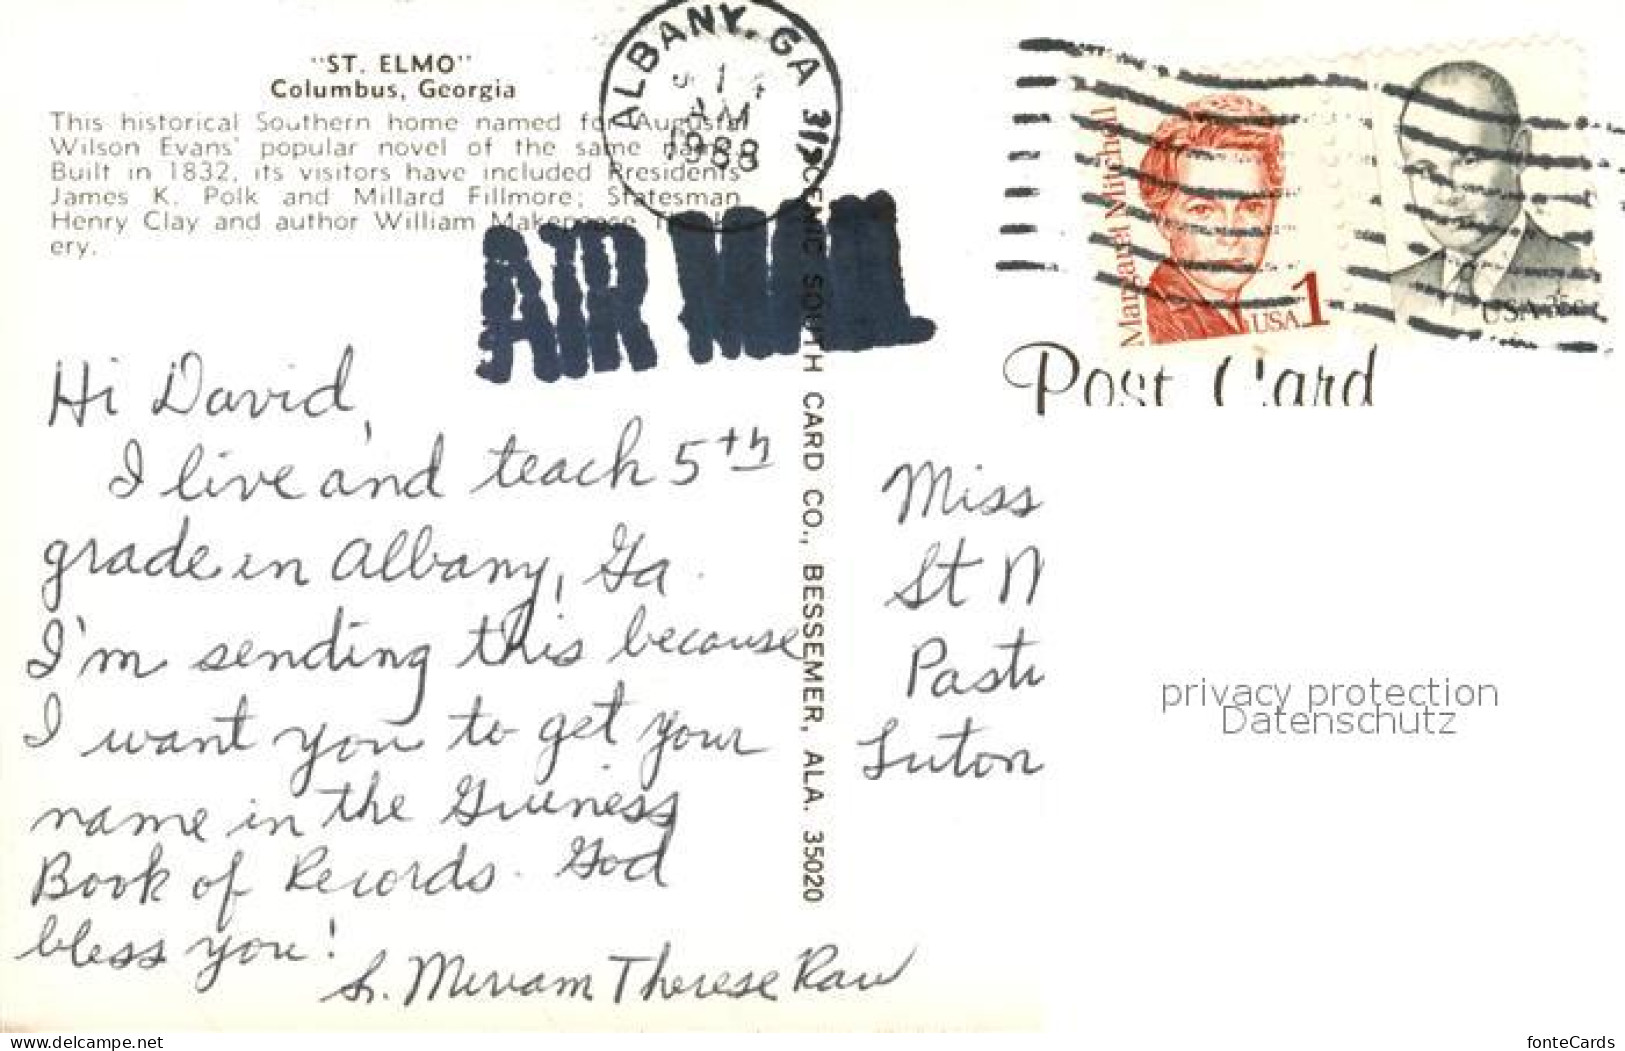 "ST. ELMO"
Columbus, Georgia
This historical Southern home named for Augusta
Wilson Evans' popular novel of the same name.
Built in 1832, its visitors have included Presidents
James K. Polk and Millard Fillmore; Statesman
Henry Clay and author William Makepeace
ery.
ALBANY, GA 317
1
AM
1988
AIR MAIL
Margaret Mitchell
USA 1
USA
Post Card
SCENIC SOUTH CARD CO., BESSEMER, ALA. 35020
Hi David,
I live and teach 5th
grade in Albany, Ga.
I'm sending this because
I want you to get your
name in the Guiness
Book of Records. God
bless you!
Sr. Miriam Therese Raw
Miss
St
Luton
privacy protection
Datenschutz
www.delcampe.net
fonteCards